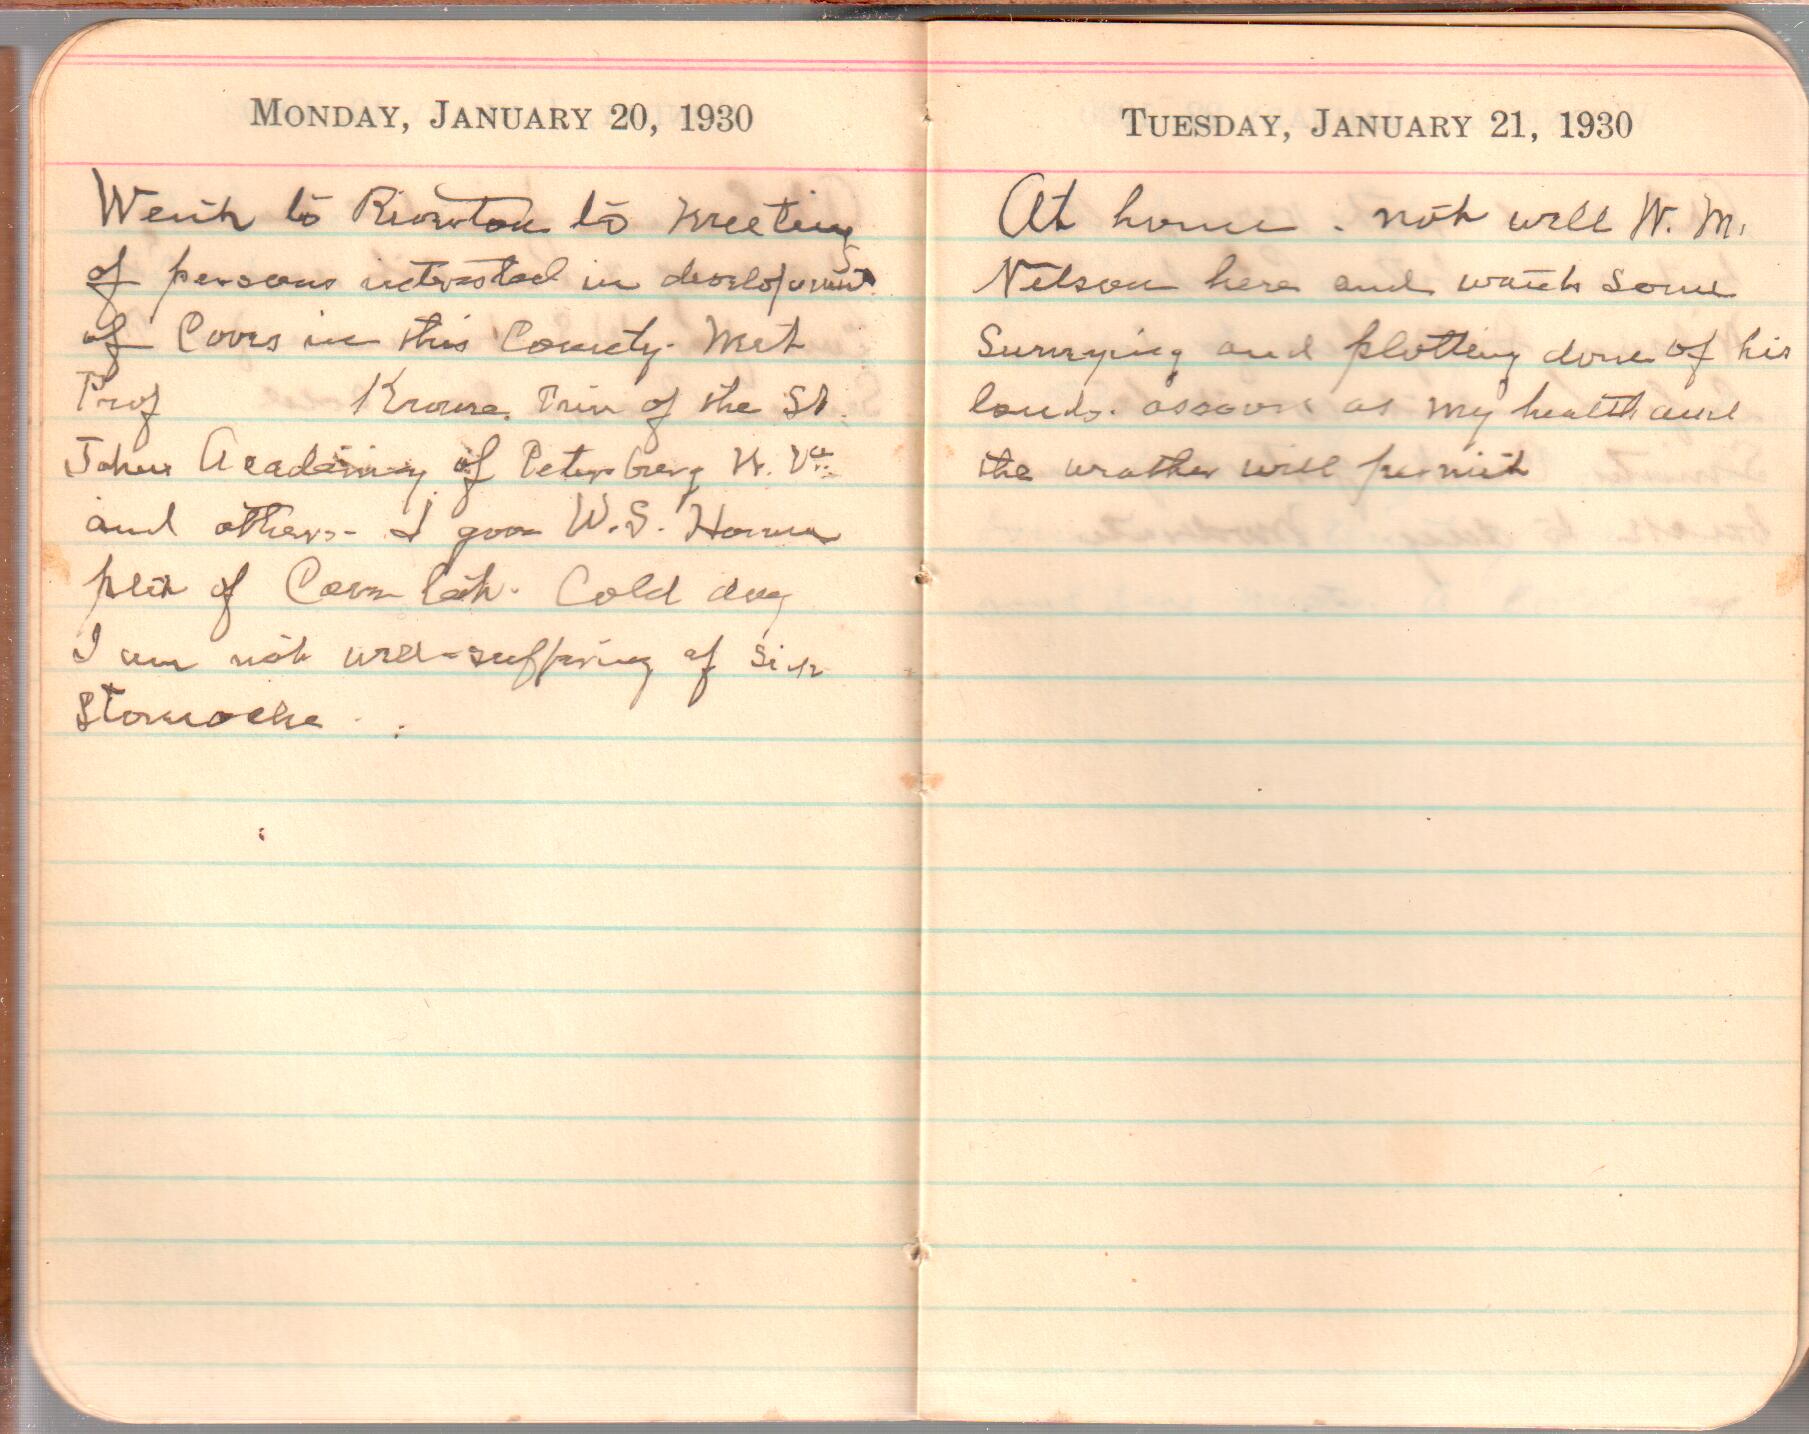 MONDAY, JANUARY 20, 1930
Went to Riverton to meeting
of persons interested in development
of Coves in this County. Met
Prof Krouse. Prin of the St.
Johns Academy of Petersburg W. Va
and others - I gave W.S. Harman
plat of Cave Lot. Cold day
I am not well - suffering of Sick
Stomache.
TUESDAY, JANUARY 21, 1930
At home. not well W. M.
Nelson here and wants some
Surveying and plotting done of his
lands. as soon as my health and
the weather will permit